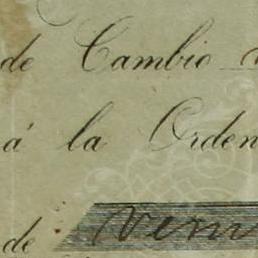 de Cambio
á la Orden
de